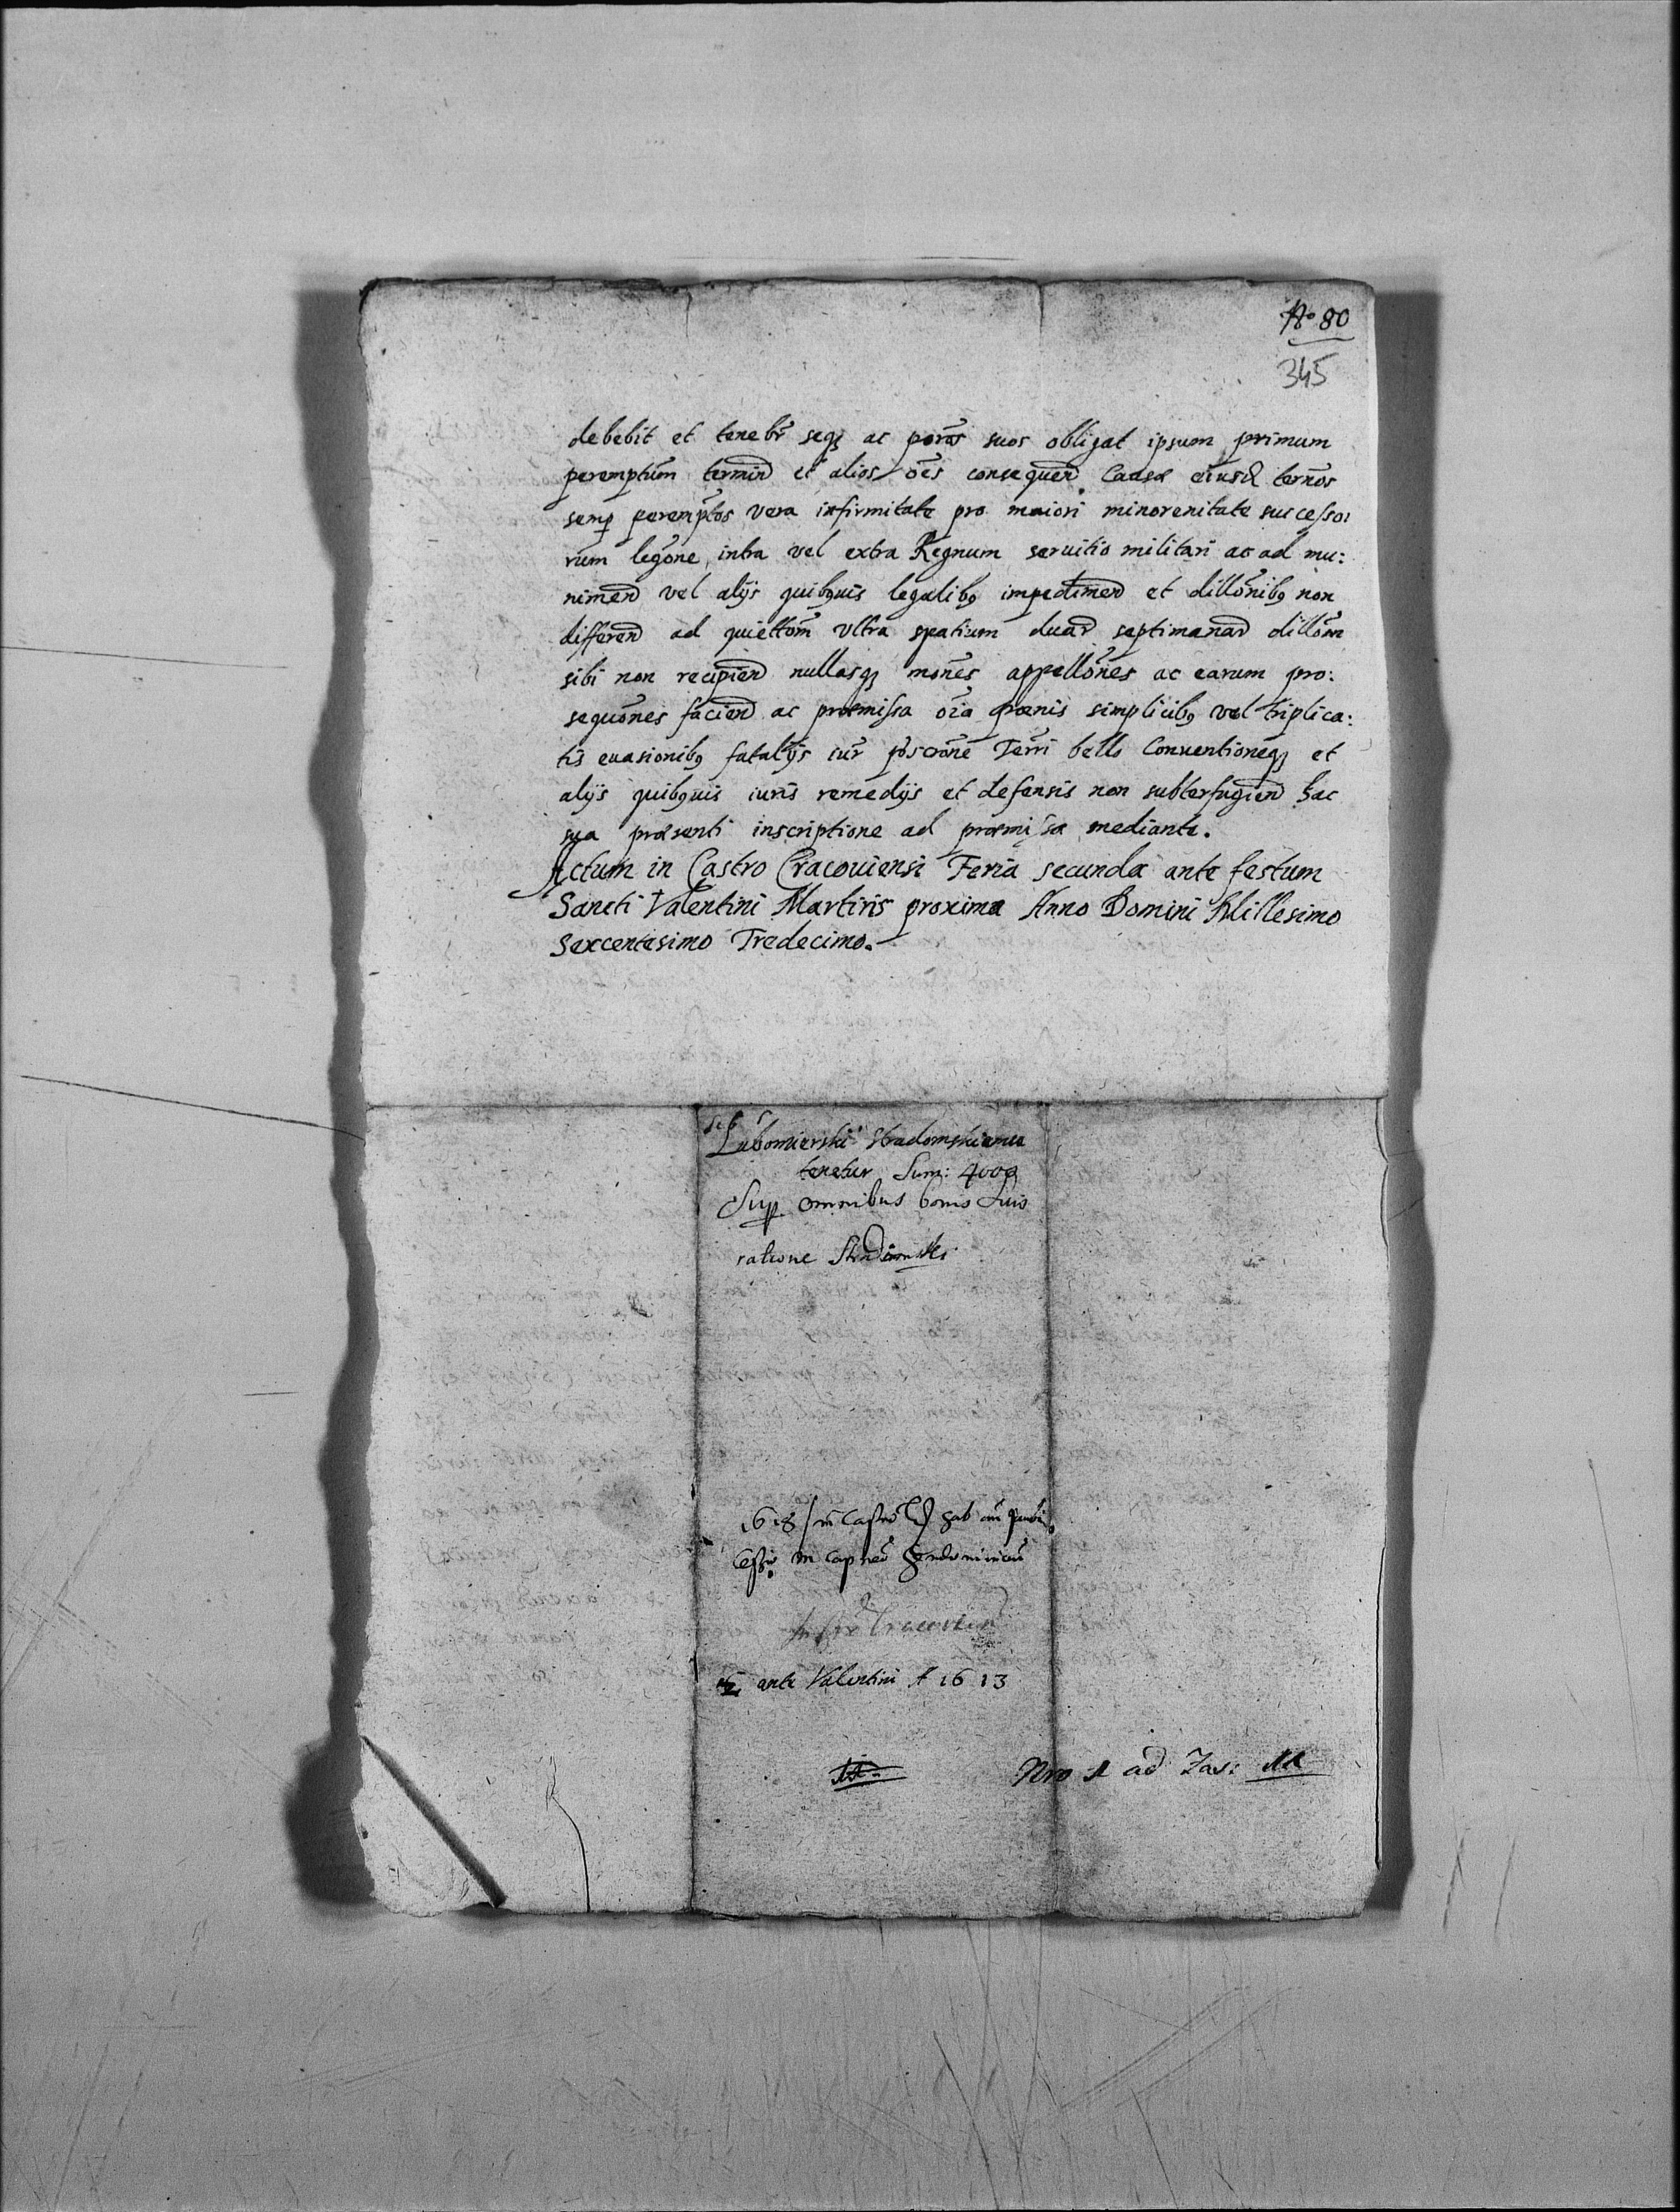 No 80
345
debebit et tenebr seqz ac poros suos obligat ipsum primum
peremptum termin et alios oes consequen Causa eiusd ternos
semp peremptos vera infirmitate pro maiori minorenitate successo
rum legone, intra vel extra Regnum seruitio militari ac ad mu:
nimen vel alijs quibquis legalibq impedimen et dillonibq non
differen ad quiettom Vltra spatium duar septimanar dillom
sibi non recipien nullasqz mones appellones ac earum pro:
sequones facien ac præmissa oia pœnis simplicibq vel triplica:
tis euasionibq fatalijs iur pscrone Terri bello Conuentioneqz et
alijs quibquis iuris remedijs et defensis non subterfugien hac
sua præsenti inscriptione ad præmissa mediante.
Actum in Castro Cracouiensi Feria secunda ante festum
Sancti Valentini Martiris proxima Anno Domini Millesimo
Sexcentesimo Tredecimo.
Seb
Lubomierski Stradomskiemu
tenetur Sum: 4000
Sup omnibus bonis suis
ratione
1618 in Castro sab
in
Cracovien
ante Valentini A 1613
M.
Nro 1 ad Fas: M